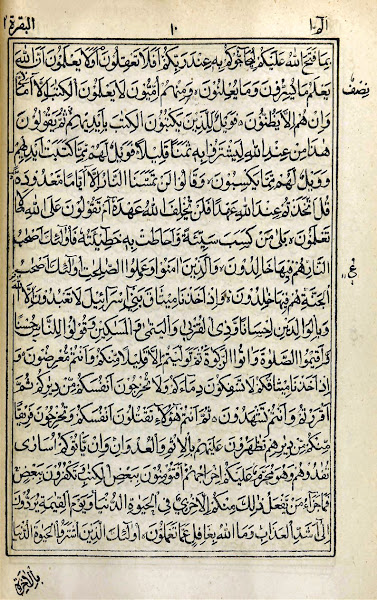 الٓمٓ ١
١٠
البقرة ٢
بِمَا فَتَحَ اللهُ عَلَيْكُمْ لِيُحَاجُّوكُمْ بِهِ عِنْدَ رَبِّكُمْ اَفَلَا تَعْقِلُونَ اَوَلَا يَعْلَمُونَ اَنَّ اللهَ
يَعْلَمُ مَا يُسِرُّونَ وَمَا يُعْلِنُونَ وَمِنْهُمْ اُمِّيُّونَ لَا يَعْلَمُونَ الْكِتٰبَ اِلَّا اَمَانِيَّ
نصف
وَاِنْ هُمْ اِلَّا يَظُنُّونَ فَوَيْلٌ لِلَّذِينَ يَكْتُبُونَ الْكِتٰبَ بِاَيْدِيهِمْ ثُمَّ يَقُولُونَ
هٰذَا مِنْ عِنْدِ اللهِ لِيَشْتَرُوا بِهِ ثَمَنًا قَلِيلًا فَوَيْلٌ لَهُمْ مِمَّا كَتَبَتْ اَيْدِيهِمْ
وَوَيْلٌ لَهُمْ مِمَّا يَكْسِبُونَ وَقَالُوا لَنْ تَمَسَّنَا النَّارُ اِلَّا اَيَّامًا مَعْدُودَةً
قُلْ اَتَّخَذْتُمْ عِنْدَ اللهِ عَهْدًا فَلَنْ يُخْلِفَ اللهُ عَهْدَهُ اَمْ تَقُولُونَ عَلَى اللهِ مَا لَا
تَعْلَمُونَ بَلٰى مَنْ كَسَبَ سَيِّئَةً وَاَحَاطَتْ بِهِ خَطِيئَتُهُ فَاُولٰئِكَ اَصْحٰبُ
النَّارِ هُمْ فِيهَا خَالِدُونَ وَالَّذِينَ اٰمَنُوا وَعَمِلُوا الصّٰلِحٰتِ اُولٰئِكَ اَصْحٰبُ
ع
الْجَنَّةِ هُمْ فِيهَا خٰلِدُونَ وَاِذْ اَخَذْنَا مِيثَاقَ بَنِي اِسْرَائِيلَ لَا تَعْبُدُونَ اِلَّا اللهَ
وَبِالْوَالِدَيْنِ اِحْسَانًا وَذِي الْقُرْبٰى وَالْيَتٰمٰى وَالْمَسٰكِينِ وَقُولُوا لِلنَّاسِ حُسْنًا
وَاَقِيمُوا الصَّلٰوةَ وَاٰتُوا الزَّكٰوةَ ثُمَّ تَوَلَّيْتُمْ اِلَّا قَلِيلًا مِنْكُمْ وَاَنْتُمْ مُعْرِضُونَ وَ
اِذْ اَخَذْنَا مِيثَاقَكُمْ لَا تَسْفِكُونَ دِمَاءَكُمْ وَلَا تُخْرِجُونَ اَنْفُسَكُمْ مِنْ دِيٰرِكُمْ ثُمَّ
اَقْرَرْتُمْ وَاَنْتُمْ تَشْهَدُونَ ثُمَّ اَنْتُمْ هٰؤُلَاءِ تَقْتُلُونَ اَنْفُسَكُمْ وَتُخْرِجُونَ فَرِيقًا
مِنْكُمْ مِنْ دِيٰرِهِمْ تَظٰهَرُونَ عَلَيْهِمْ بِالْاِثْمِ وَالْعُدْوَانِ وَاِنْ يَاْتُوكُمْ اُسَارٰى
تُفٰدُوهُمْ وَهُوَ مُحَرَّمٌ عَلَيْكُمْ اِخْرَاجُهُمْ اَفَتُؤْمِنُونَ بِبَعْضِ الْكِتٰبِ وَتَكْفُرُونَ بِبَعْضٍ
فَمَا جَزَاءُ مَنْ يَفْعَلُ ذٰلِكَ مِنْكُمْ اِلَّا خِزْيٌ فِي الْحَيٰوةِ الدُّنْيَا وَيَوْمَ الْقِيٰمَةِ يُرَدُّونَ
اِلٰى اَشَدِّ الْعَذَابِ وَمَا اللهُ بِغَافِلٍ عَمَّا تَعْمَلُونَ اُولٰئِكَ الَّذِينَ اشْتَرَوُا الْحَيٰوةَ الدُّنْيَا
بالاخرة